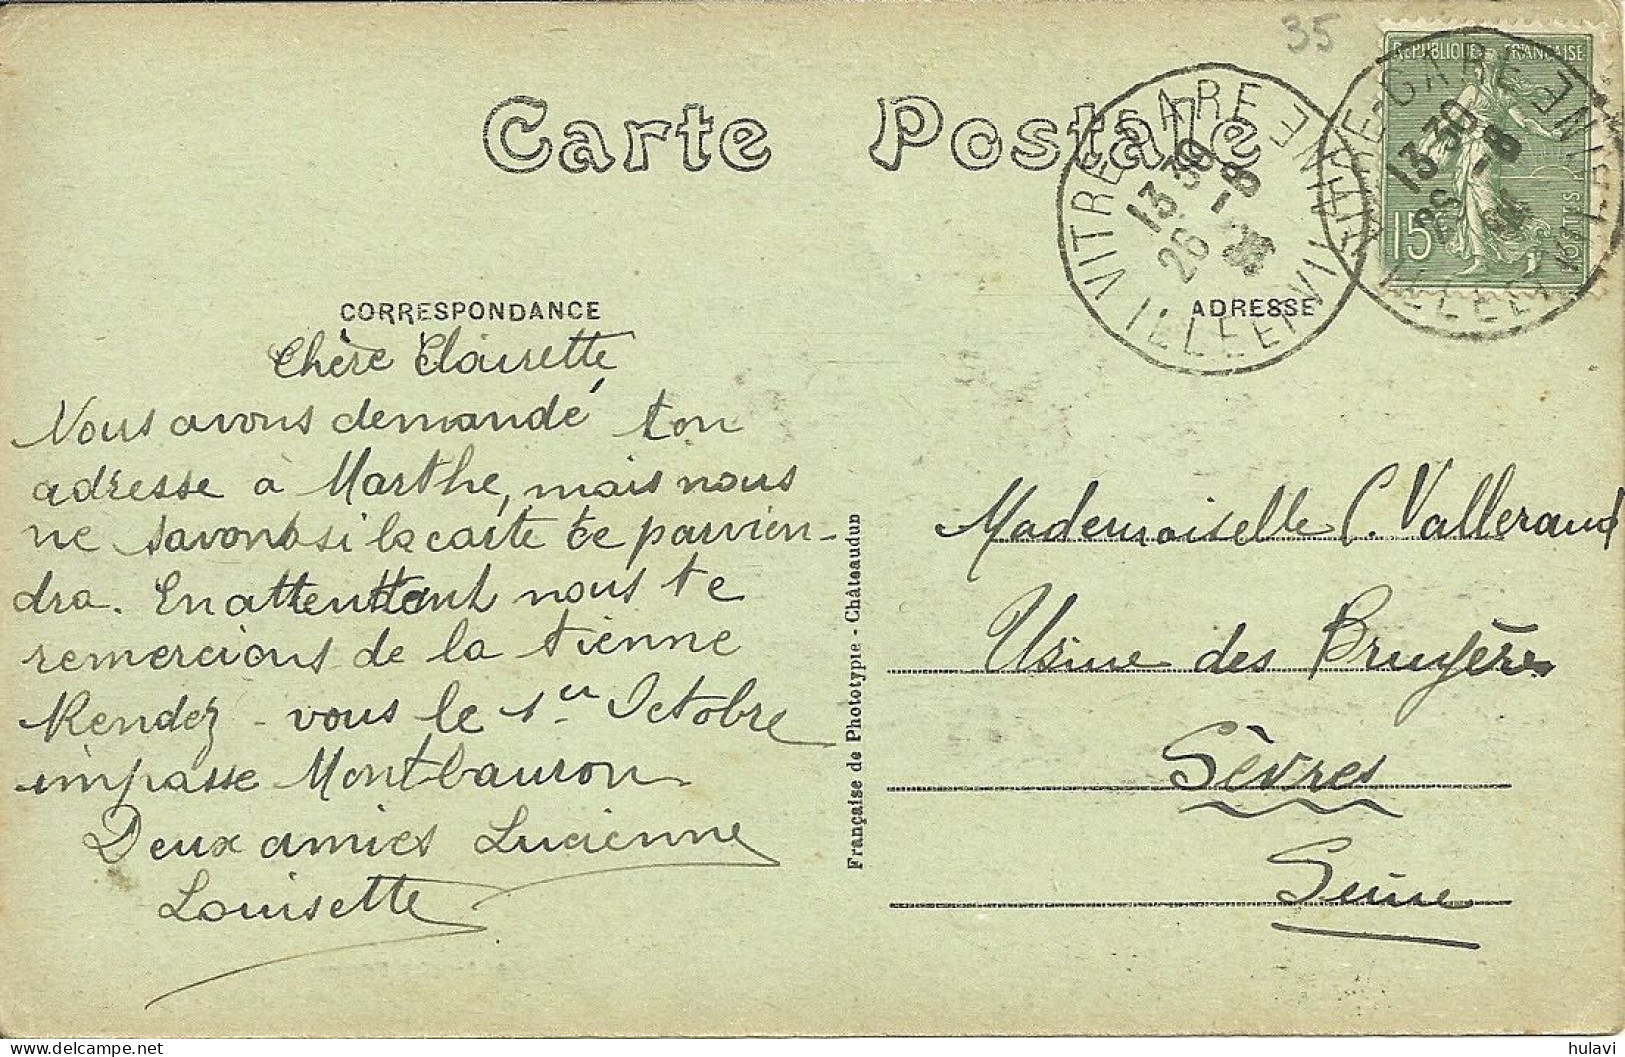 35
Carte Postale
REPUBLIQUE FRANÇAISE
15c
POSTES
VITRE-GARE
13 30
26 -8
ILLE ET VILAINE
VITRE-GARE
13 30
26 -8
ILLE ET VILAINE
CORRESPONDANCE
Chère Clairette
Nous avons demandé ton
adresse à Marthe, mais nous
ne savons si la carte te parvien-
dra. En attentant nous te
remercions de la tienne
Rendez-vous le 1er Octobre
impasse Montbauron
Deux amies Lucienne
Louisette
Française de Phototypie - Châteaudun
ADRESSE
Mademoiselle C. Vallerand
Usine des Bruyères
Sèvres
Seine
hulavi